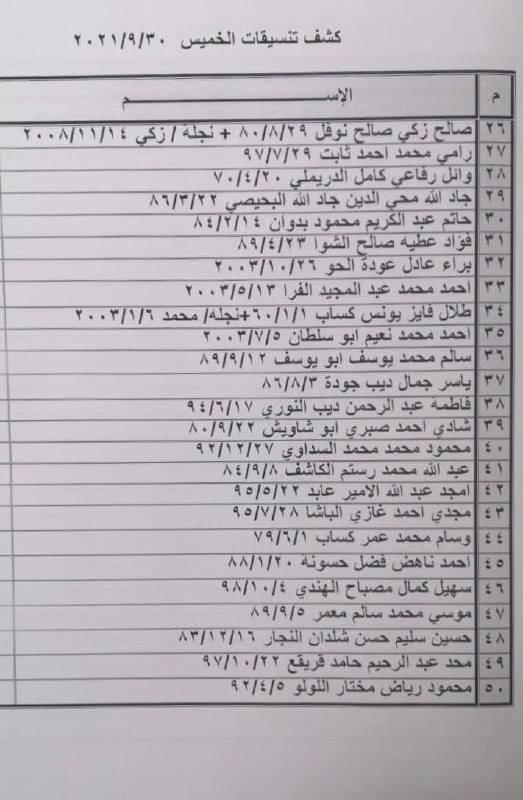 كشف تنسيقات الخميس ٢٠٢١/٩/٣٠
م الإســــــــــــم
٢٦ صالح زكي صالح نوفل ٨٠/٨/٢٩ + نجلة / زكي ٢٠٠٨/١١/١٤
٢٧ رامي محمد احمد ثابت ٩٧/٧/٢٩
٢٨ وائل رفاعي كامل الدريملي ٧٠/٤/٢٠
٢٩ جاد الله محي الدين جاد الله البحيصي ٨٦/٣/٢٢
٣٠ حاتم عبد الكريم محمود بدوان ٨٤/٢/١٤
٣١ فؤاد عطيه صالح الشوا ٨٩/٤/٢٣
٣٢ براء عادل عودة الحو ٢٠٠٣/١٠/٢٦
٣٣ احمد محمد عبد المجيد الفرا ٢٠٠٣/٥/١٣
٣٤ طلال فايز يونس كساب ٦٠/١/١+نجله/ محمد ٢٠٠٣/١/٦
٣٥ احمد محمد نعيم ابو سلطان ٢٠٠٣/٧/٥
٣٦ سالم محمد يوسف ابو يوسف ٨٩/٩/١٢
٣٧ ياسر جمال ديب جودة ٨٦/٨/٣
٣٨ فاطمه عبد الرحمن ديب النوري ٩٤/٦/١٧
٣٩ شادي احمد صبري ابو شاويش ٨٠/٩/٢٢
٤٠ محمود محمد محمد السداوي ٩٢/١٢/٢٧
٤١ عبد الله محمد رستم الكاشف ٨٤/٩/٨
٤٢ امجد عبد الله الامير عابد ٩٥/٥/٢٢
٤٣ مجدي احمد غازي الباشا ٩٥/٧/٢٨
٤٤ وسام محمد عمر كساب ٧٩/٦/١
٤٥ احمد ناهض فضل حسونة ٨٨/١/٢٠
٤٦ سهيل كمال مصباح الهندي ٩٨/١٠/٤
٤٧ موسي محمد سالم معمر ٨٩/٩/٥
٤٨ حسين سليم حسن شلدان النجار ٨٣/١٢/١٦
٤٩ محد عبد الرحيم حامد قريقع ٩٧/١٠/٢٢
٥٠ محمود رياض مختار اللولو ٩٢/٤/٥